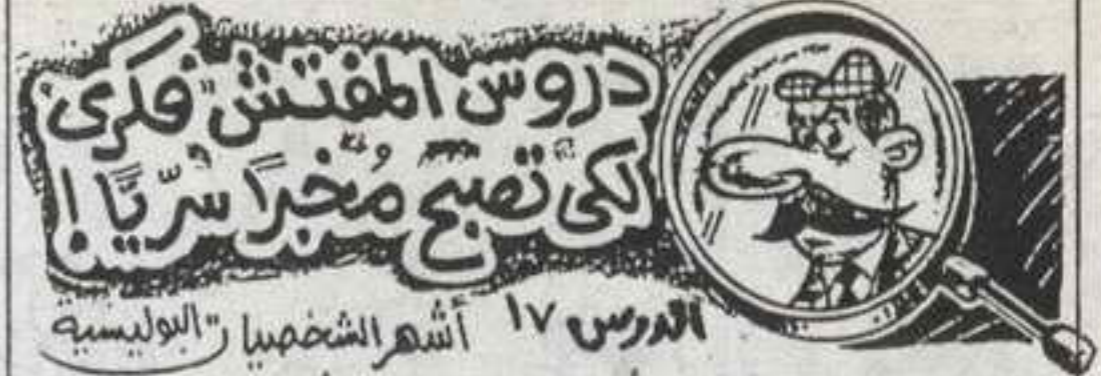 دروس المفتش "فكرى"
لكى تصبح مُخبرًا سرّيًا!
الدرس ١٧ أشهر الشخصيات البوليسية